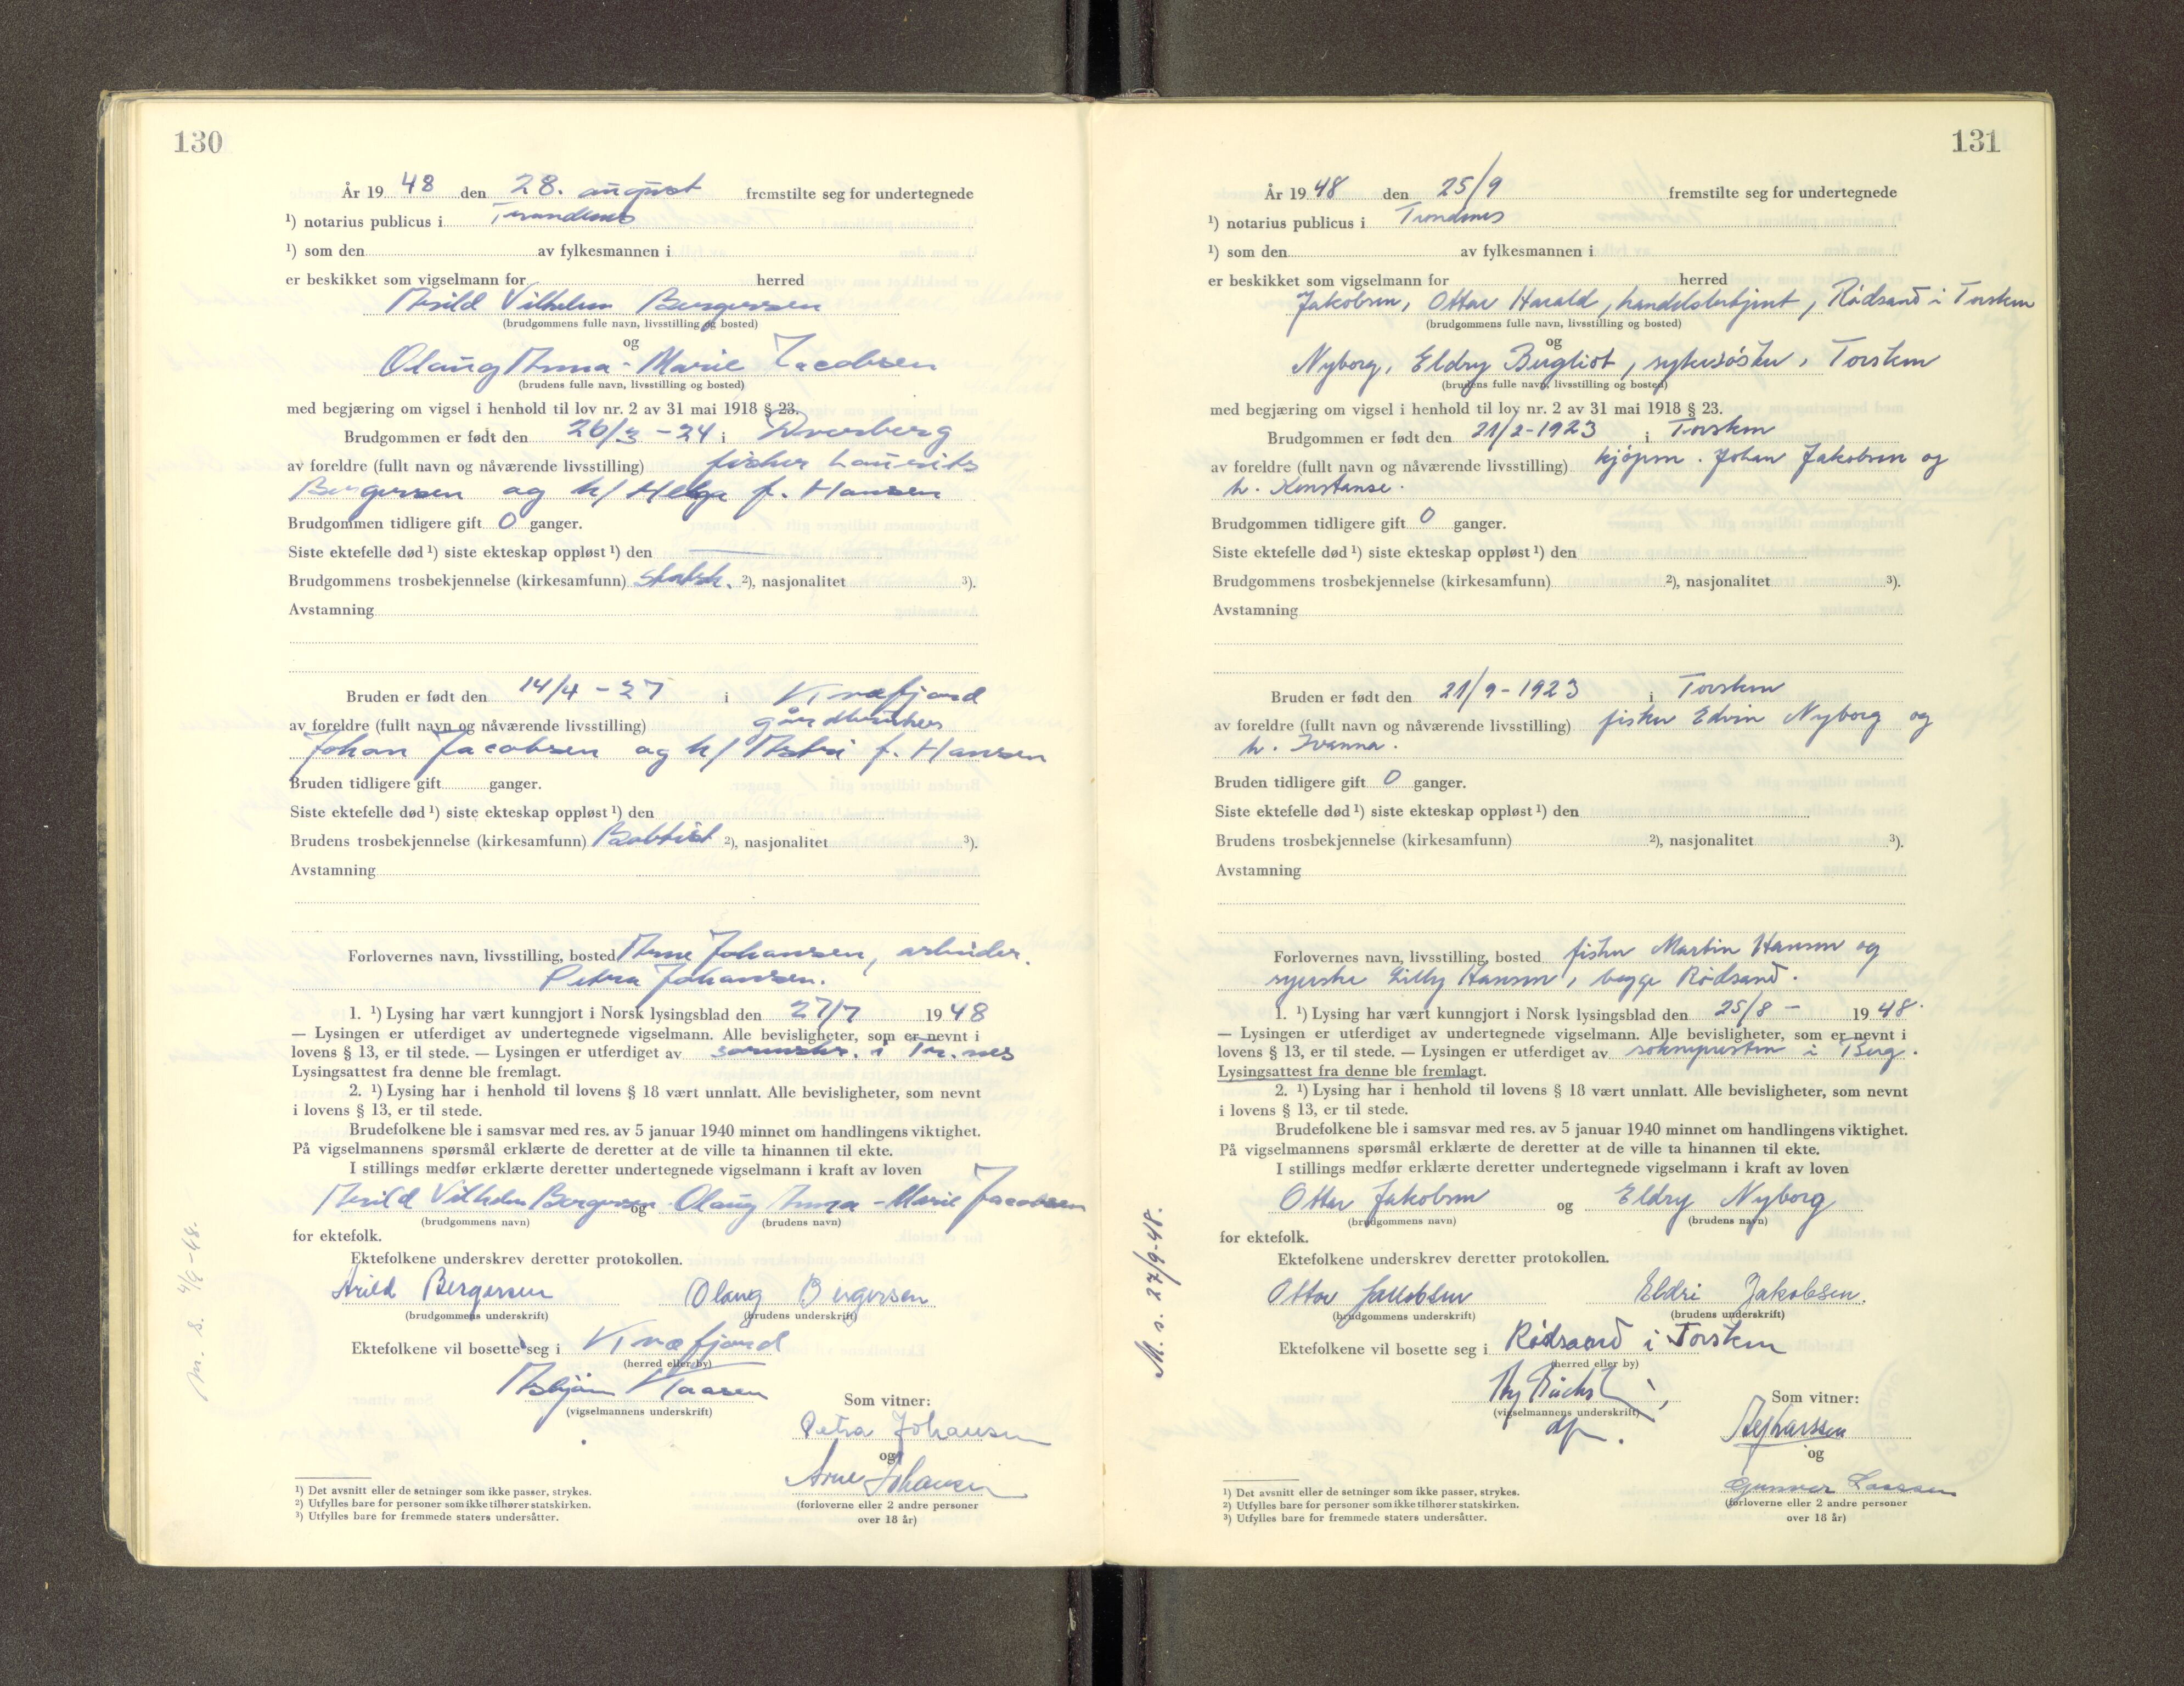 130
År 19 48 den 28. august fremstilte seg for undertegnede
¹) notarius publicus i Trondenes
¹) som den av fylkesmannen i
er beskikket som vigselmann for herred
Arild Vilhelm Bergersen
(brudgommens fulle navn, livsstilling og bosted)
og
Olaug Anna-Marie Jacobsen
(brudens fulle navn, livsstilling og bosted)
med begjæring om vigsel i henhold til lov nr. 2 av 31 mai 1918 § 23.
Brudgommen er født den 26/3 - 24 i Dverberg
av foreldre (fullt navn og nåværende livsstilling) fisker Laurits
Bergersen og h/ Helga f. Hansen
Brudgommen tidligere gift 0 ganger.
Siste ektefelle død ¹) siste ekteskap oppløst ¹) den
Brudgommens trosbekjennelse (kirkesamfunn) statsk. ²), nasjonalitet ³).
Avstamning
Bruden er født den 14/4 - 27 i Kvæfjord
av foreldre (fullt navn og nåværende livsstilling) gårdbruker
Johan Jacobsen og h/ Astri f. Hansen
Bruden tidligere gift ganger.
Siste ektefelle død ¹) siste ekteskap oppløst ¹) den
Brudens trosbekjennelse (kirkesamfunn) Babtist ²), nasjonalitet ³).
Avstamning
Forlovernes navn, livsstilling, bosted Arne Johansen, arbeider.
Petra Johansen.
1. ¹) Lysing har vært kunngjort i Norsk lysingsblad den 27/7 19 48
— Lysingen er utferdiget av undertegnede vigselmann. Alle bevisligheter, som er nevnt i
lovens § 13, er til stede. — Lysingen er utferdiget av sorenskr. i Tr.nes
Lysingsattest fra denne ble fremlagt.
2. ¹) Lysing har i henhold til lovens § 18 vært unnlatt. Alle bevisligheter, som nevnt
i lovens § 13, er til stede.
Brudefolkene ble i samsvar med res. av 5 januar 1940 minnet om handlingens viktighet.
På vigselmannens spørsmål erklærte de deretter at de ville ta hinannen til ekte.
I stillings medfør erklærte deretter undertegnede vigselmann i kraft av loven
Arild Vilhelm Bergersen og Olaug Anna-Marie Jacobsen
(brudgommens navn) (brudens navn)
for ektefolk.
Ektefolkene underskrev deretter protokollen.
Arild Bergersen Olaug Bergersen
(brudgommens underskrift) (brudens underskrift)
Ektefolkene vil bosette seg i Kvæfjord
(herred eller by)
Asbjørn Haasen
(vigselmannens underskrift)
Som vitner:
Petra Johansen
og
Arne Johansen
(forloverne eller 2 andre personer
over 18 år)
¹) Det avsnitt eller de setninger som ikke passer, strykes.
²) Utfylles bare for personer som ikke tilhører statskirken.
³) Utfylles bare for fremmede staters undersåtter.
m. s. 4/9-48.
131
År 19 48 den 25/9 fremstilte seg for undertegnede
¹) notarius publicus i Trondenes
¹) som den av fylkesmannen i
er beskikket som vigselmann for herred
Jakobsen, Ottar Harald, handelsbetjent, Rødsand i Torsken
(brudgommens fulle navn, livsstilling og bosted)
og
Nyborg, Eldry Bergliot, sykesøster, Torsken
(brudens fulle navn, livsstilling og bosted)
med begjæring om vigsel i henhold til lov nr. 2 av 31 mai 1918 § 23.
Brudgommen er født den 21/2-1923 i Torsken
av foreldre (fullt navn og nåværende livsstilling) kjøpm. Johan Jakobsen og
h. Konstanse.
Brudgommen tidligere gift 0 ganger.
Siste ektefelle død ¹) siste ekteskap oppløst ¹) den
Brudgommens trosbekjennelse (kirkesamfunn) ²), nasjonalitet ³).
Avstamning
Bruden er født den 21/9-1923 i Torsken
av foreldre (fullt navn og nåværende livsstilling) fisker Edvin Nyborg og
h. Ivanna.
Bruden tidligere gift 0 ganger.
Siste ektefelle død ¹) siste ekteskap oppløst ¹) den
Brudens trosbekjennelse (kirkesamfunn) ²), nasjonalitet ³).
Avstamning
Forlovernes navn, livsstilling, bosted fisker Martin Hansen og
syerske Lilly Hansen, begge Rødsand.
1. ¹) Lysing har vært kunngjort i Norsk lysingsblad den 25/8 - 19 48.
— Lysingen er utferdiget av undertegnede vigselmann. Alle bevisligheter, som er nevnt i
lovens § 13, er til stede. — Lysingen er utferdiget av soknepresten i Berg.
Lysingsattest fra denne ble fremlagt.
2. ¹) Lysing har i henhold til lovens § 18 vært unnlatt. Alle bevisligheter, som nevnt
i lovens § 13, er til stede.
Brudefolkene ble i samsvar med res. av 5 januar 1940 minnet om handlingens viktighet.
På vigselmannens spørsmål erklærte de deretter at de ville ta hinannen til ekte.
I stillings medfør erklærte deretter undertegnede vigselmann i kraft av loven
Ottar Jakobsen og Eldry Nyborg
(brudgommens navn) (brudens navn)
for ektefolk.
Ektefolkene underskrev deretter protokollen.
Ottar Jakobsen Eldri Jakobsen.
(brudgommens underskrift) (brudens underskrift)
Ektefolkene vil bosette seg i Rødsand i Torsken
(herred eller by)
(vigselmannens underskrift)
Som vitner:
og
Gunvor Lassen
(forloverne eller 2 andre personer
over 18 år)
¹) Det avsnitt eller de setninger som ikke passer, strykes.
²) Utfylles bare for personer som ikke tilhører statskirken.
³) Utfylles bare for fremmede staters undersåtter.
M. s. 27/9-48.